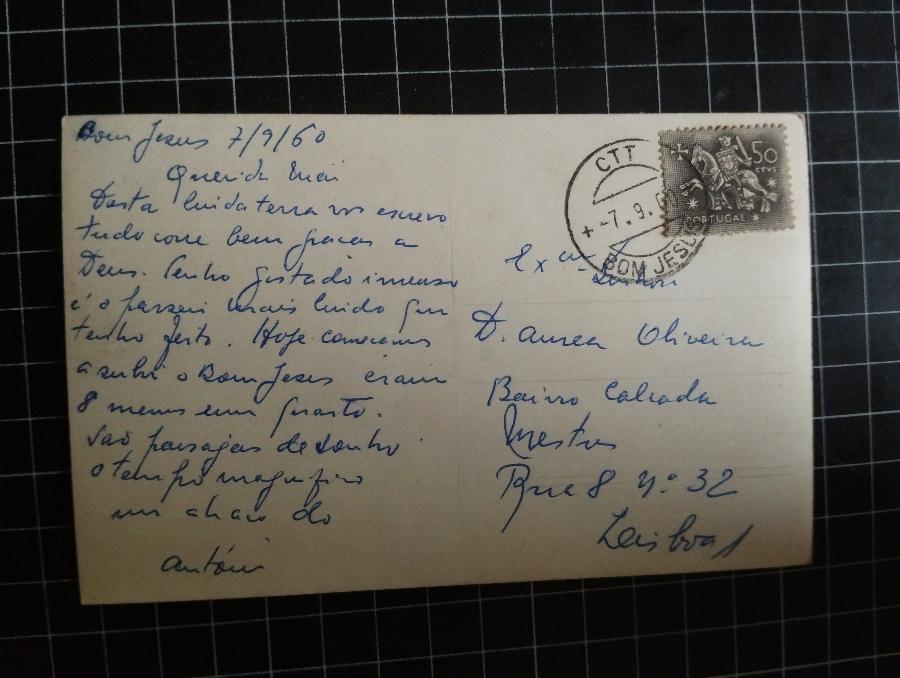 Bom Jesus 7/9/60
Querida Mãi
Desta linda terra vos escrevo
tudo corre bem graças a
Deus. Tenho gostado imenso
é o passeio mais lindo que
tenho feito. Hoje começamos
a subir o Bom Jesus eram
8 menos um quarto.
São paisagens de sonho
o tempo magnifico
um abraço do
António
CTT
+ -7.9.6
BOM JESUS
50
CTVS
PORTUGAL
Exma Senhora
D. Aurea Oliveira
Bairro Calçada
Mestres
Rua 8 nº 32
Lisboa 1